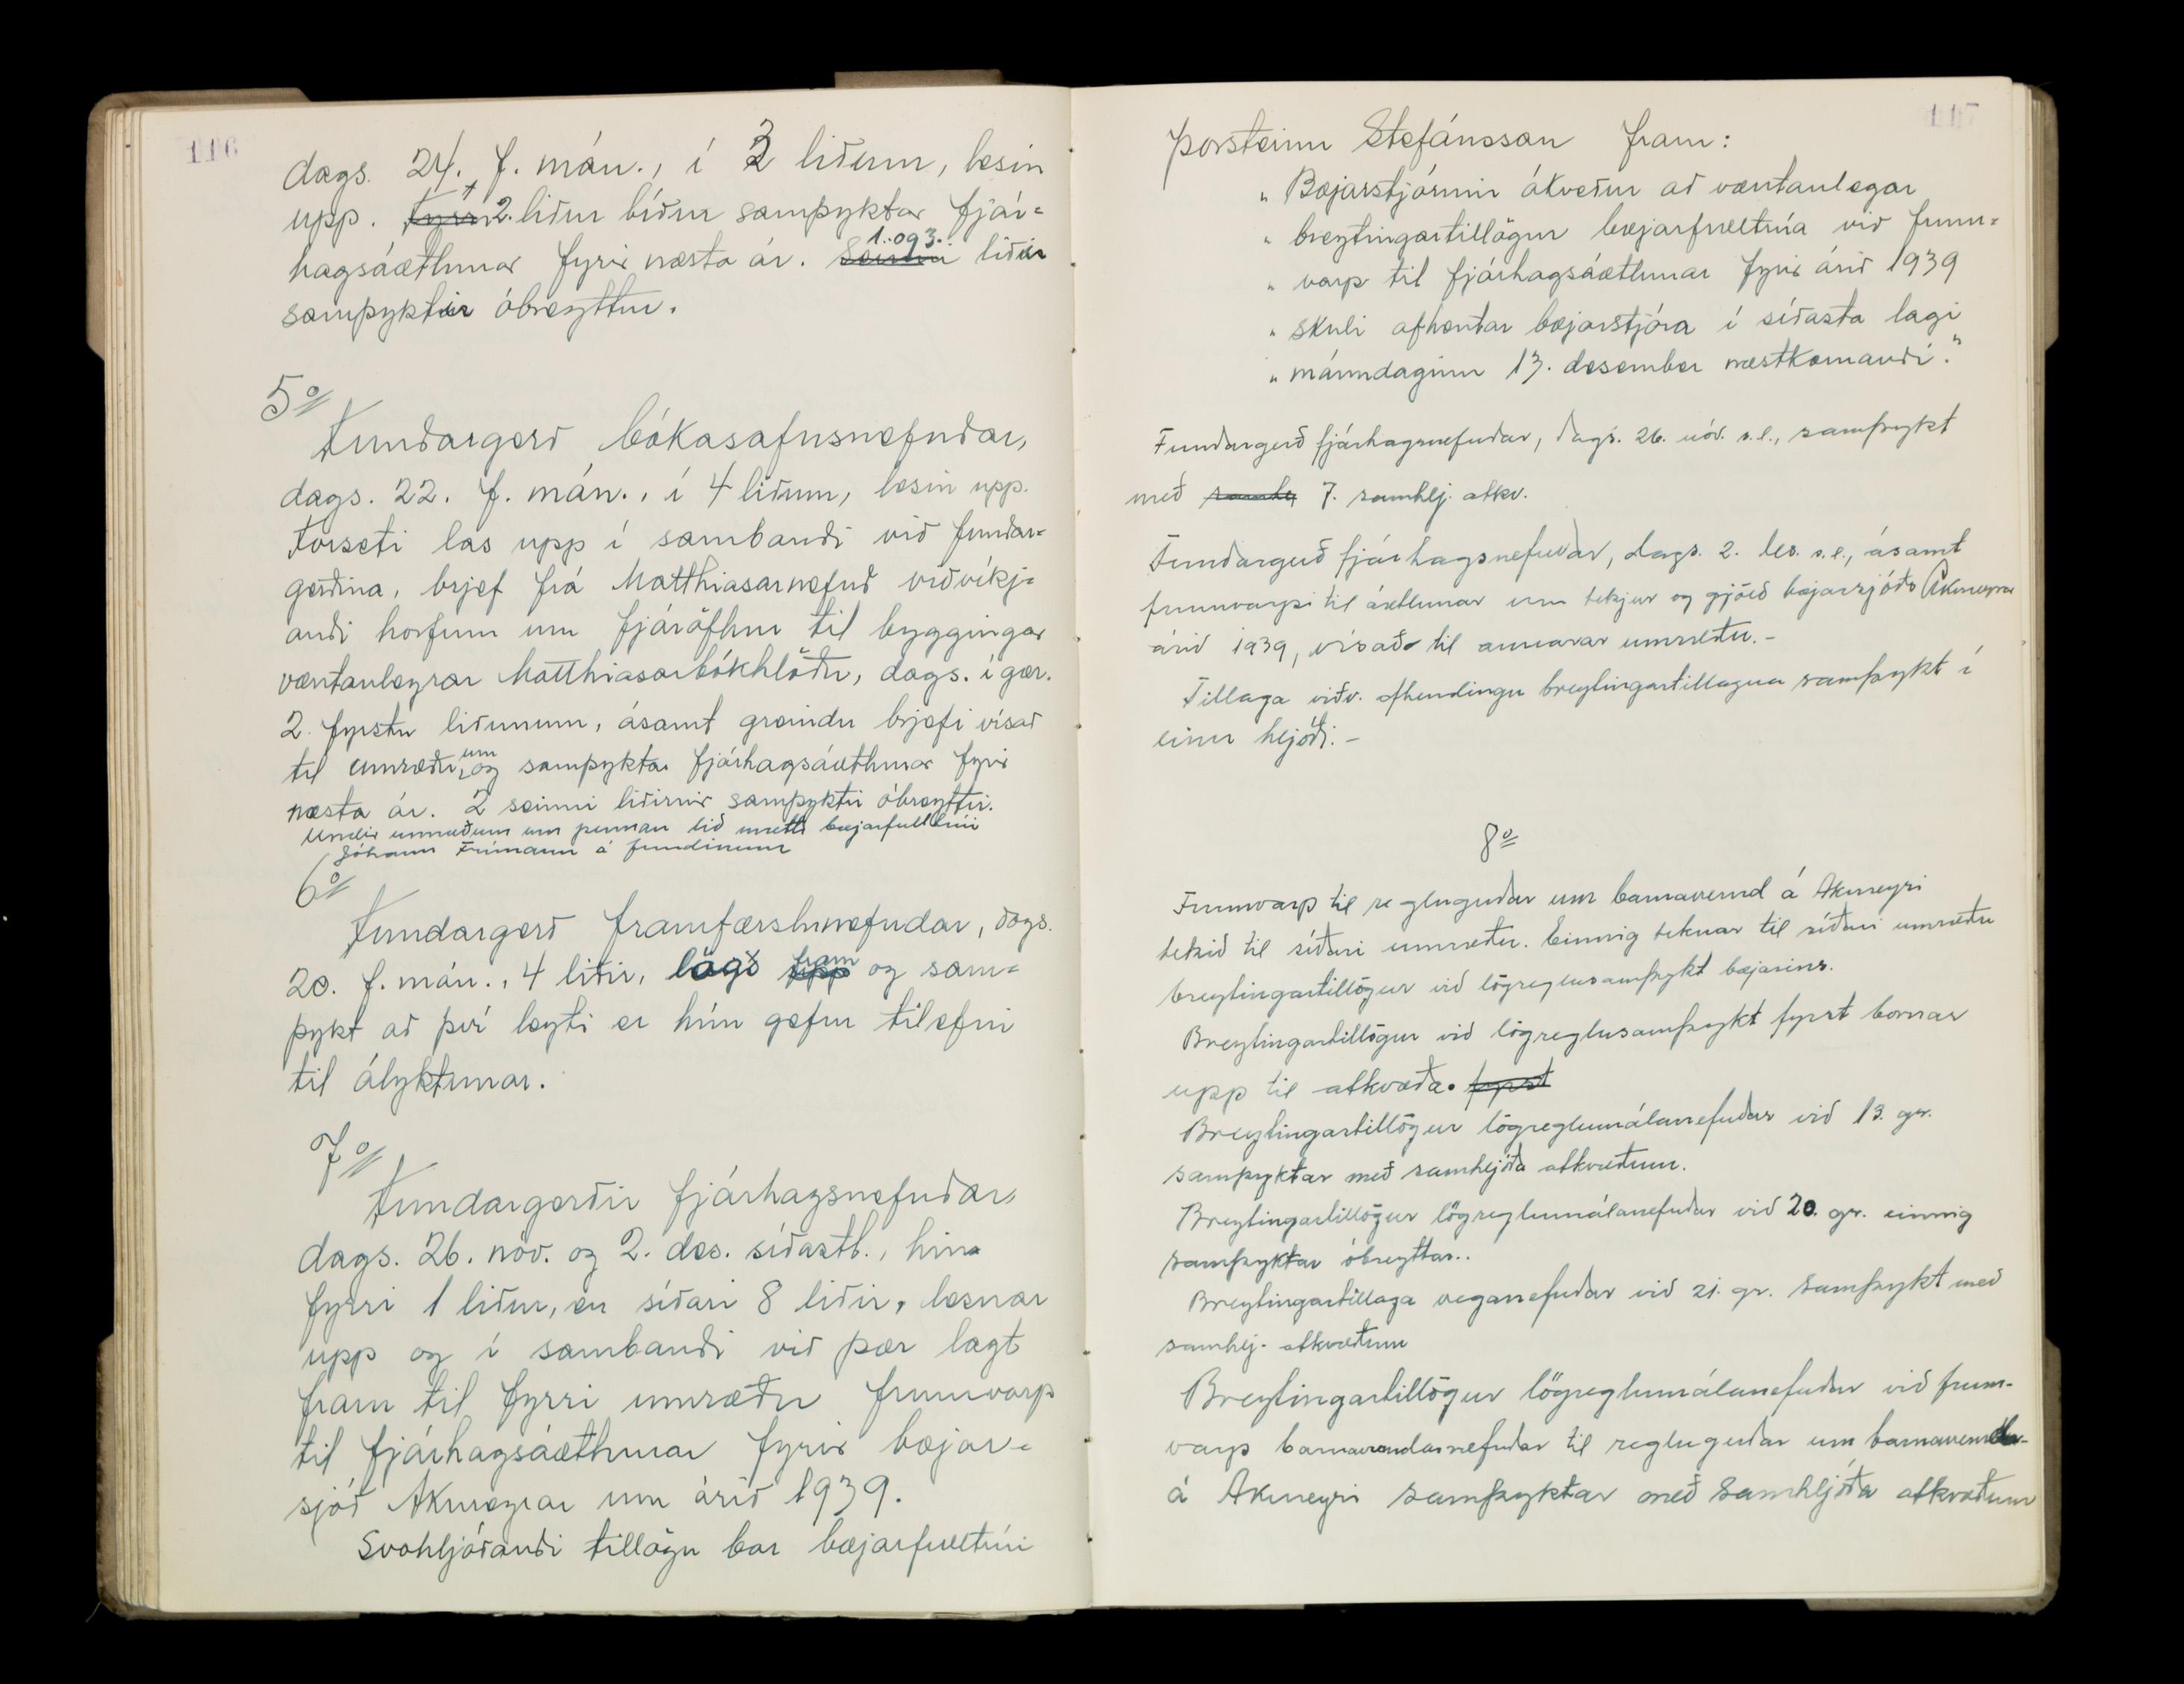 116
dags. 24. f. mán., í 3 liðum, lesin
upp. Fyrri 2. liður bíður samþyktar fjár-
hagsáætlunar fyrir næsta ár. Seinni 1. og 3. liðir
samþyktir óbreyttir.
5o/
Fundargerð bókasafnsnefndar,
dags. 22. f. mán., í 4 liðum, lesin upp.
Forseti las upp í sambandi við fundar-
gerðina, brjef frá Matthiasarnefnd viðvíkj-
andi horfum um fjáröflun til byggingar
væntanlegrar Matthiasarbókhlöðu, dags. í gær.
2 fyrstu liðunum, ásamt greindu brjefi vísað
til umræðu um og samþykta fjárhagsáætlunar fyrir
næsta ár. 2 seinni liðirnir samþyktir óbreyttir.
Undir umræðum um þennan lið mætti bæjarfulltrúi
Jóhann Frímann á fundinum
6o/
Fundargerð framfærslunefndar, dags.
20. f. mán., 4 liðir, lögð upp fram og sam-
þykt að því leyti er hún gefur tilefni
til ályktunar.
7o/
Fundargerðir fjárhagsnefndar,
dags. 26. nóv. og 2. des. síðastl., hin
fyrri 1 liður, en síðari 8 liðir, lesnar
upp og í sambandi við þær lagt
fram til fyrri umræðu frumvarp
til fjárhagsáætlunar fyrir bæjar-
sjóð Akureyrar um árið 1939.
Svohljóðandi tillögu bar bæjarfulltrúi
117
Þorsteinn Stefánsson fram:
„ Bæjarstjórnin ákveður að væntanlegar
„ breytingartillögur bæjarfulltrúa við frum-
„ varp til fjárhagsáætlunar fyrir árið 1939
„ skuli afhentar bæjarstjóra í síðasta lagi
„ mánudaginn 13. desember næstkomandi."
Fundargerð fjárhagsnefndar, dags. 26. nóv. s.l., samþykt
með samhlj 7. samhlj. atkv.
Fundargerð fjárhagsnefndar, dags. 2. des. s.l., ásamt
frumvarpi til áætlunar um tekjur og gjöld bæjarsjóðs Akureyrar
árið 1939, vísað til annarar umræðu. -
Tillaga viðv. afhendingu breytingartillagna samþykt í
einu hljóði. -
8o
Frumvarp til reglugerðar um barnavernd á Akureyri
tekið til síðari umræðu. Einnig teknar til síðari umræðu
breytingartillögur við lögreglusamþykt bæjarins.
Breytingartillögur við lögreglusamþykt fyrst bornar
upp til atkvæða. fyrst
Breytingartillögur lögreglumálanefndar við 13. gr.
samþyktar með samhljóða atkvæðum.
Breytingartillögur lögreglumálanefndar við 20. gr. einnig
samþyktar óbreyttar..
Breytingartillaga veganefndar við 21. gr. samþykt með
samhlj. atkvæðum
Breytingartillögur lögreglumálanefndar við frum-
varp barnaverndarnefndar til reglugerðar um barnavernd
á Akureyri samþyktar með samhljóða atkvæðum